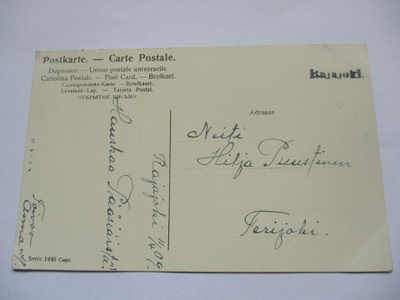 Postkarte. — Carte Postale.
Dopisnice. — Union postale universelle.
Cartolina Postale. — Post Card. — Brefkort.
Correspondenz-Karte — Briefkaart.
Levelező-Lap. — Tarjeta Postal.
ОТКРЫТОЕ ПИСЬМО.
Rajajoki.
Adresse:
Neiti
Hilja Puustinen
Terijoki.
Rajajoki
09.
Hauskaa Pääsiäistä!
Toivoo
Serie 1440